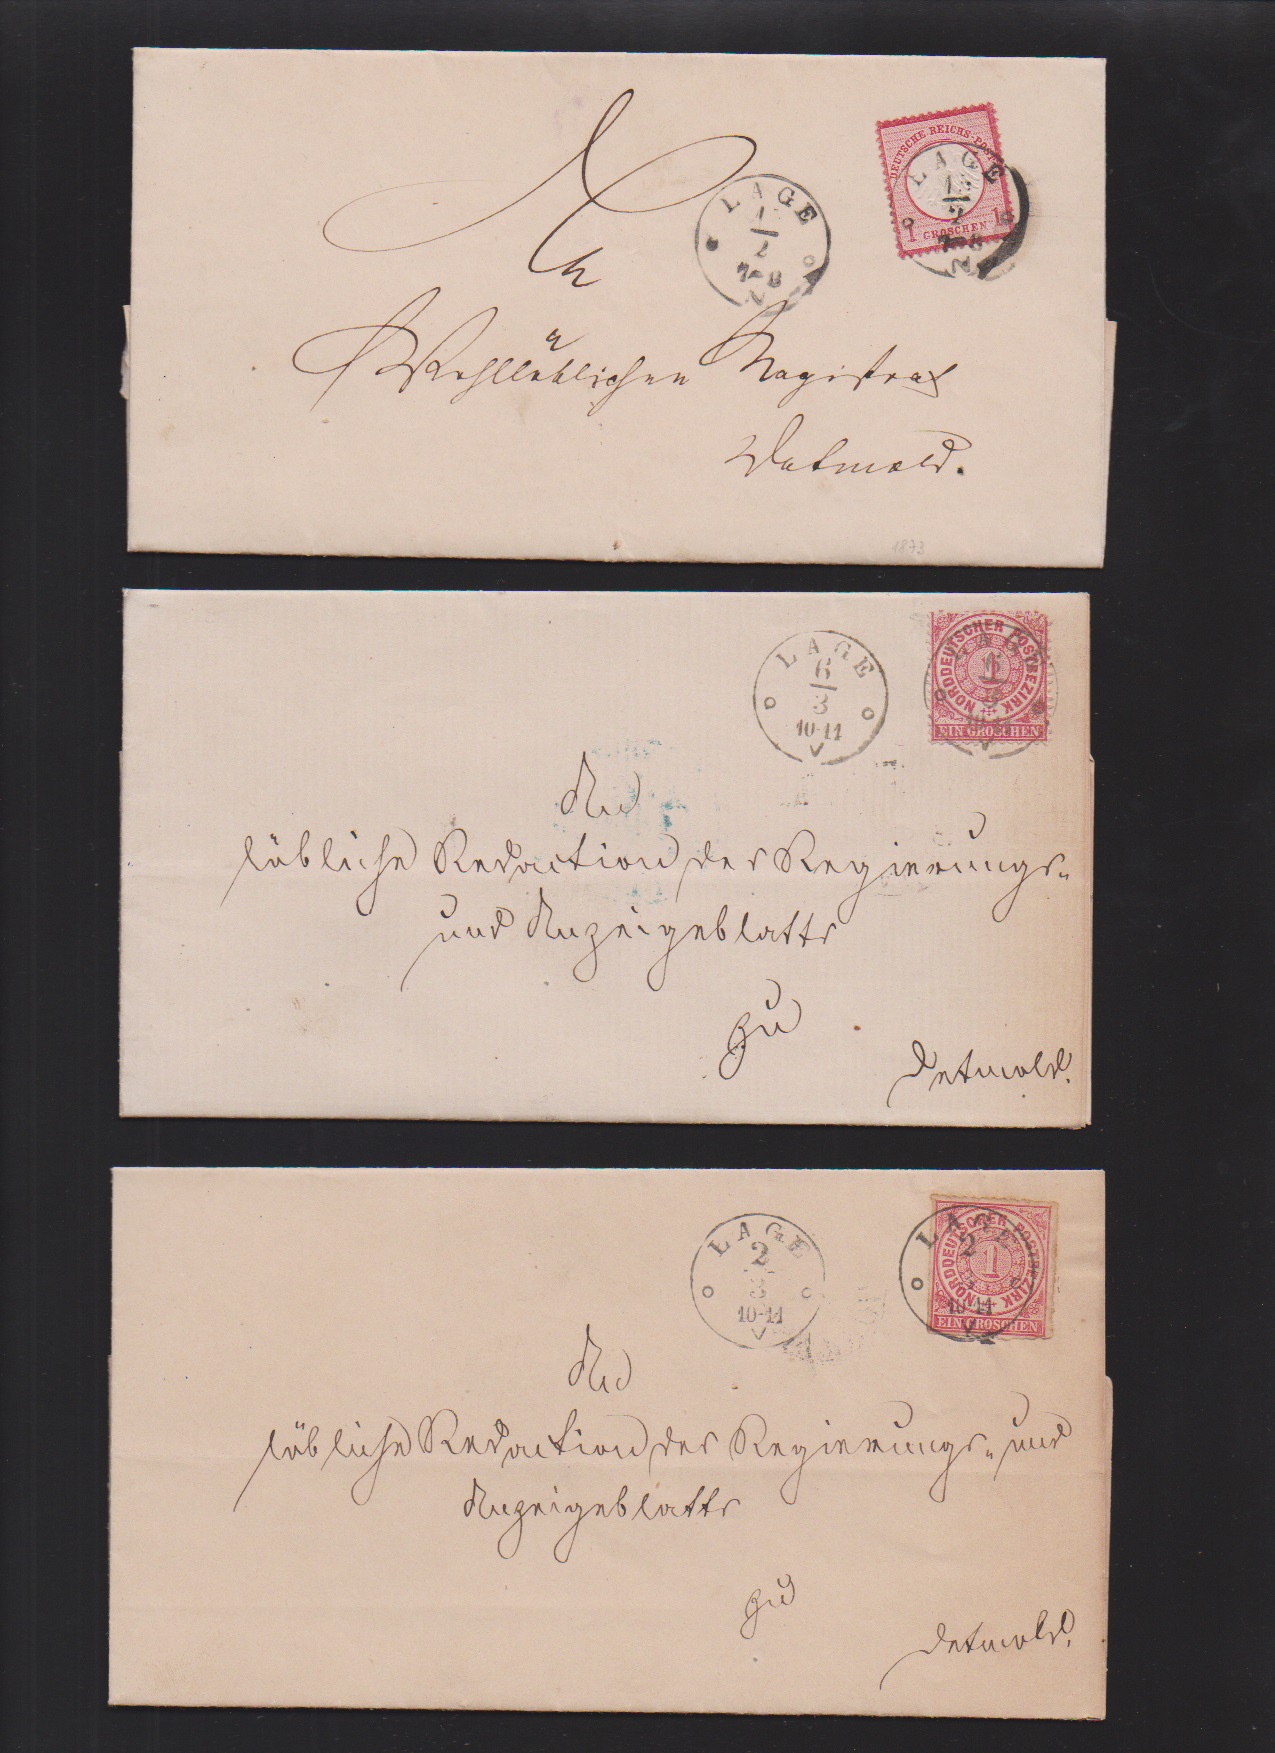 An
Wohllöblichen Magistrat
Detmold.
LAGE
2
7-8
N
DEUTSCHE REICHS-POST
1 GROSCHEN 1
LAGE
2
7-8
N
1873
LAGE
6
3
10-11
V
NORDDEUTSCHER POSTBEZIRK
1
EIN GROSCHEN
LAGE
6
3
10-11
V
An
löbliche Redaction des Regierungs-
und Anzeigeblatts
zu
Detmold.
LAGE
2
3
10-11
V
NORDDEUTSCHER POSTBEZIRK
1
EIN GROSCHEN
LAGE
2
3
10-11
An
löbliche Redaction des Regierungs- und
Anzeigeblatts
zu
Detmold.